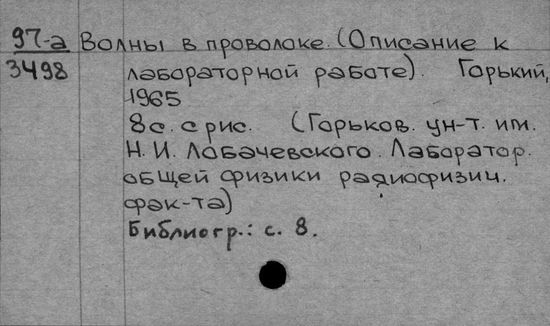 97-а Волны в проволоке. (Описание к
3498 лабораторной работе). Горький,
1965
8с. с рис. (Горьков. ун-т. им.
Н.И. Лобачевского. Лаборатор.
общей физики радиофизич.
фак-та)
Библиогр.: с. 8.